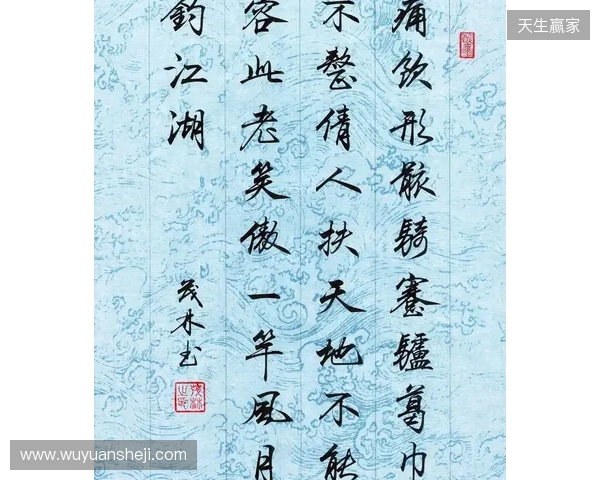 痛饮形骸騎蹇驢葛巾
不整倩人扶天地不能
容此老笑傲一竿風月
釣江湖
茂林书
天生赢家
www.wuyuansheji.com